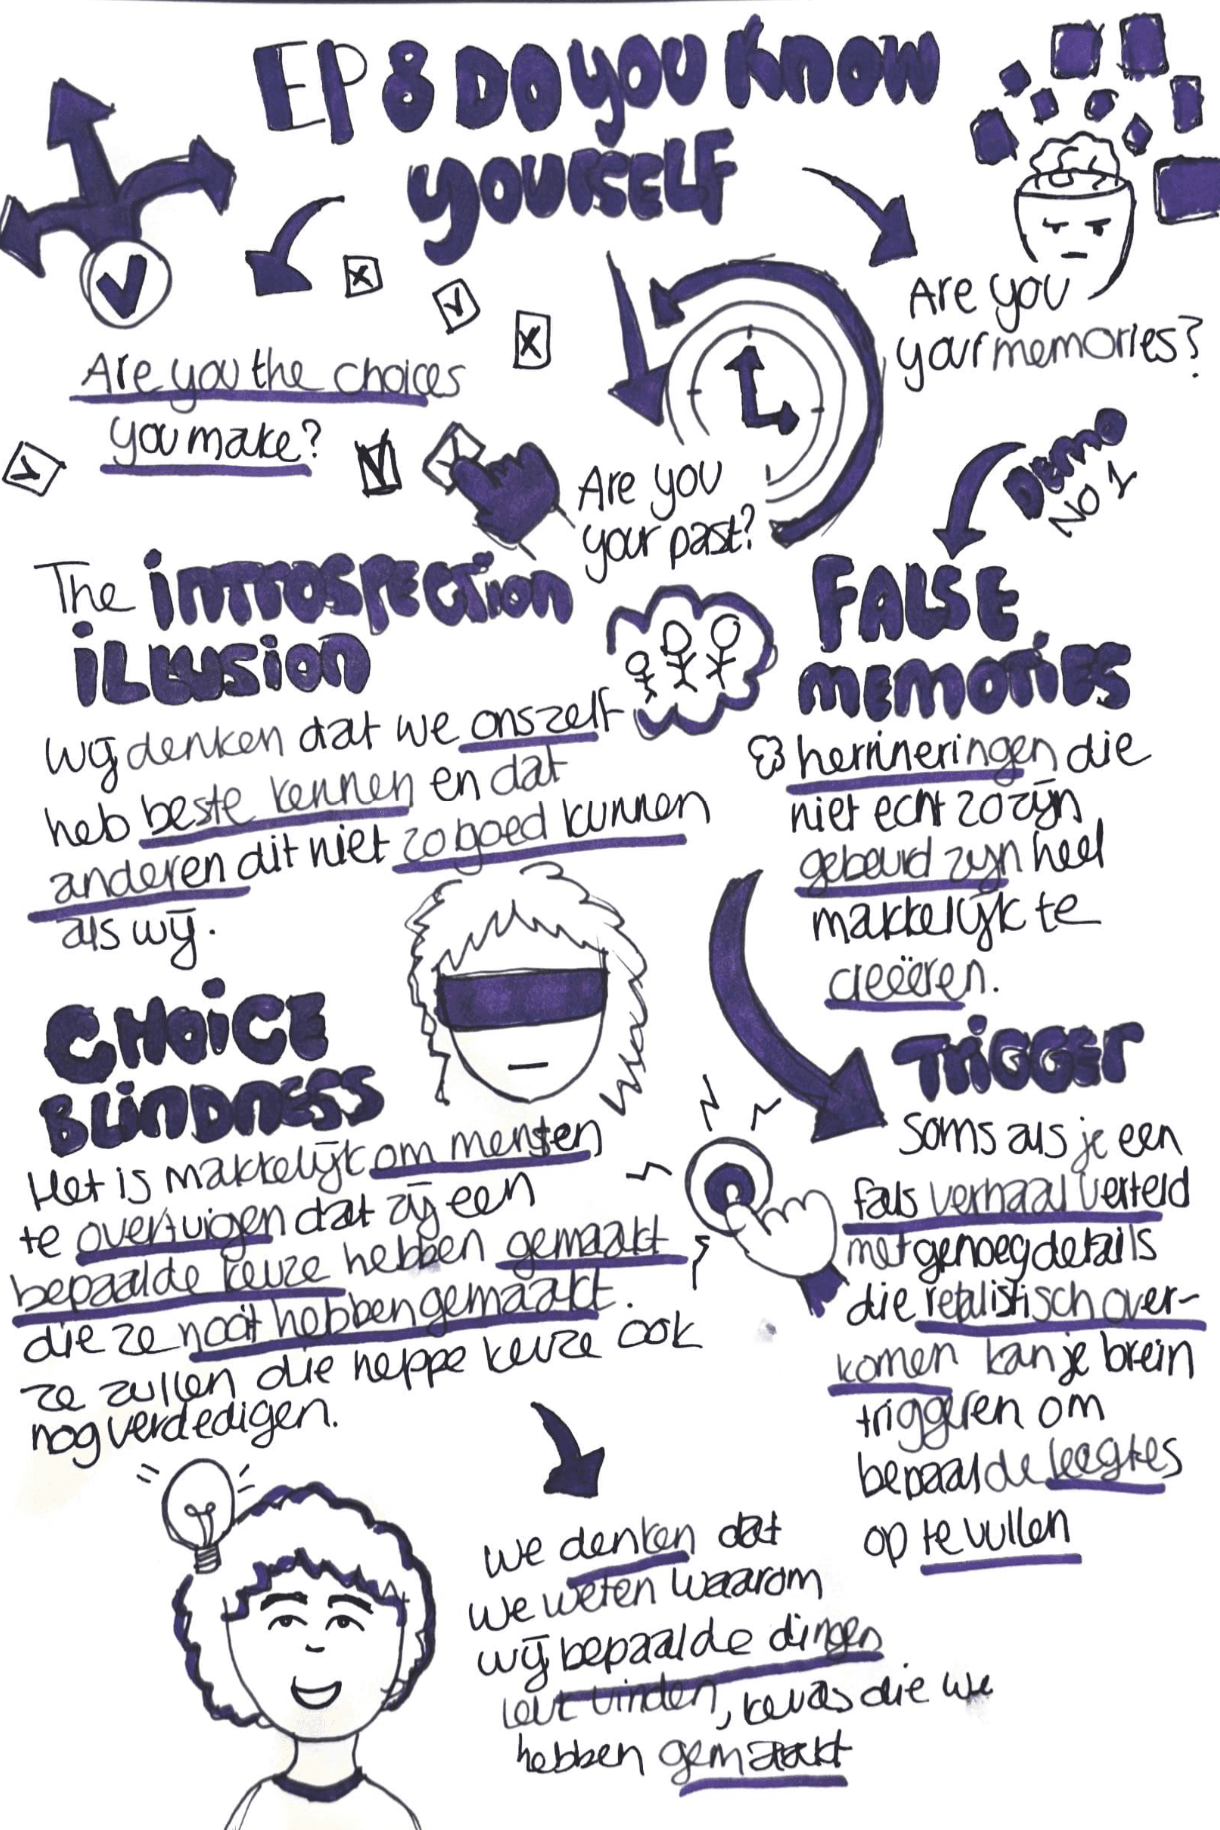 EP 8 DO YOU KNOW
YOURSELF
Are you the choices
you make?
Are you
your past?
Are you
your memories?
Demo
NO 1
The introspection
illusion
wij denken dat we onszelf
heb beste kennen en dat
anderen dit niet zo goed kunnen
als wij.
CHOICE
BLINDNESS
Het is makkelijk om mensen
te overtuigen dat zij een
bepaalde keuze hebben gemaakt
die ze nooit hebben gemaakt.
ze zullen die neppe keuze ook
nog verdedigen.
we denken dat
we weten waarom
wij bepaalde dingen
leuk vinden, keuzes die we
hebben gemaakt
FALSE
MEMORIES
herrineringen die
niet echt zo zijn
gebeurd zijn heel
makkelijk te
creëeren.
TRIGGER
Soms als je een
fals verhaal verteld
met genoeg details
die realistisch over-
komen kan je brein
triggeren om
bepaalde leegtes
op te vullen